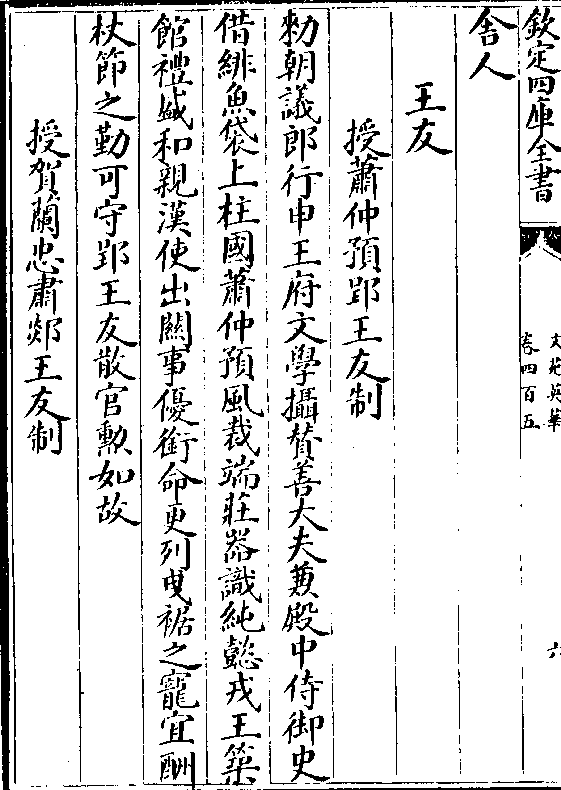 欽定四庫全書
文苑英華
卷四百五
六
舍人
王友
授蕭仲預郢王友制
勅朝議郎行申王府文學攝賛善大夫兼殿中侍御史
借緋魚袋上柱國蕭仲預風裁端莊器識純懿戎王築
館禮盛和親漢使出關事優銜命更列曳裾之寵宜酬
杖節之勤可守郢王友散官勲如故
授賀蘭忠肅郯王友制